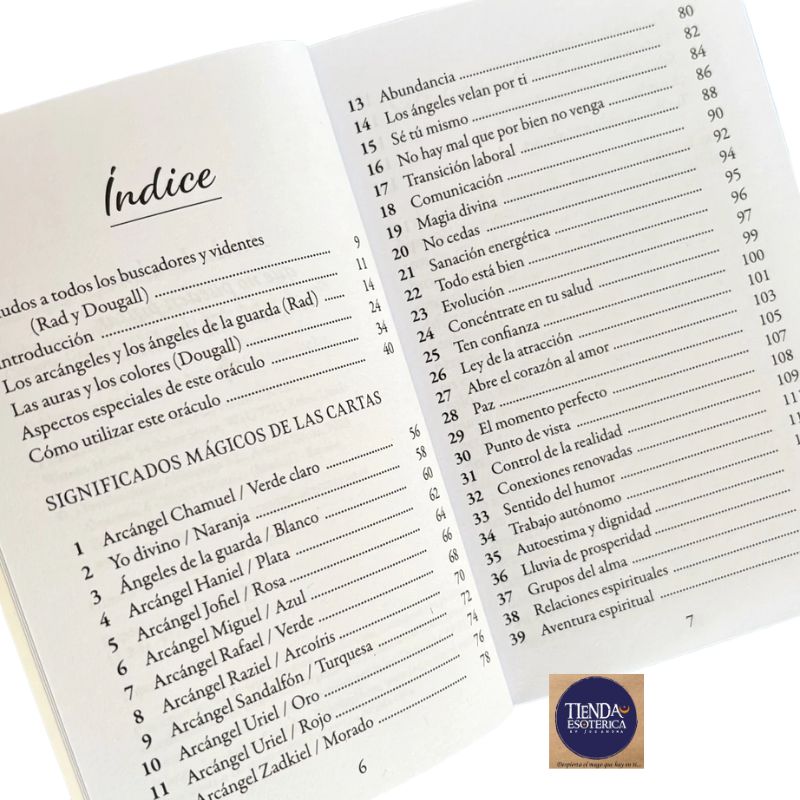 Índice
udos a todos los buscadores y videntes
(Rad y Dougall) ........ 9
ntroducción ........ 11
Los arcángeles y los ángeles de la guarda (Rad) ........ 14
Las auras y los colores (Dougall) ........ 24
Aspectos especiales de este oráculo ........ 34
Cómo utilizar este oráculo ........ 40
SIGNIFICADOS MÁGICOS DE LAS CARTAS
1 Arcángel Chamuel / Verde claro ........ 56
2 Yo divino / Naranja ........ 58
3 Ángeles de la guarda / Blanco ........ 60
4 Arcángel Haniel / Plata ........ 62
5 Arcángel Jofiel / Rosa ........ 64
6 Arcángel Miguel / Azul ........ 66
7 Arcángel Rafael / Verde ........ 68
8 Arcángel Raziel / Arcoíris ........ 70
9 Arcángel Sandalfón / Turquesa ........ 72
10 Arcángel Uriel / Oro ........ 74
11 Arcángel Uriel / Rojo ........ 76
Arcángel Zadkiel / Morado ........ 78
6
13 Abundancia ........ 80
14 Los ángeles velan por ti ........ 82
15 Sé tú mismo ........ 84
16 No hay mal que por bien no venga ........ 86
17 Transición laboral ........ 88
18 Comunicación ........ 90
19 Magia divina ........ 92
20 No cedas ........ 94
21 Sanación energética ........ 95
22 Todo está bien ........ 96
23 Evolución ........ 97
24 Concéntrate en tu salud ........ 99
25 Ten confianza ........ 100
26 Ley de la atracción ........ 101
27 Abre el corazón al amor ........ 103
28 Paz ........ 105
29 El momento perfecto ........ 107
30 Punto de vista ........ 108
31 Control de la realidad ........ 109
32 Conexiones renovadas ........
33 Sentido del humor ........
34 Trabajo autónomo ........
35 Autoestima y dignidad ........
36 Lluvia de prosperidad ........
37 Grupos del alma ........
38 Relaciones espirituales ........
39 Aventura espiritual ........
7
TIENDA
ESOTERICA
Despierta el mago que hay en ti...